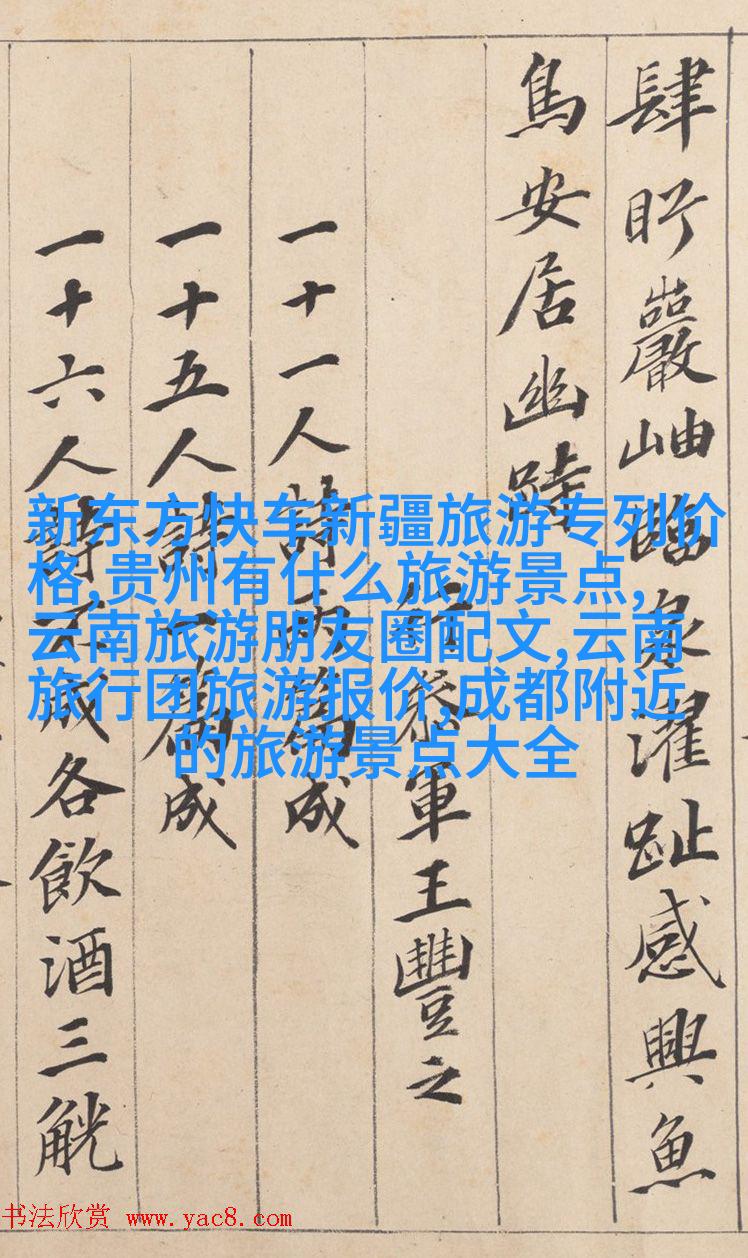 肆盱巖岫臨泉濯趾感興魚
鳥安居幽跱
行叅軍王豐之
一十一人詩兩篇成
一十五人詩一篇成
一十六人詩不成各飲酒三觥
新东方快车新疆旅游专列价
格,贵州有什么旅游景点,
云南旅游朋友圈配文,云南
旅行团旅游报价,成都附近
的旅游景点大全
书法欣赏 www.yac8.com